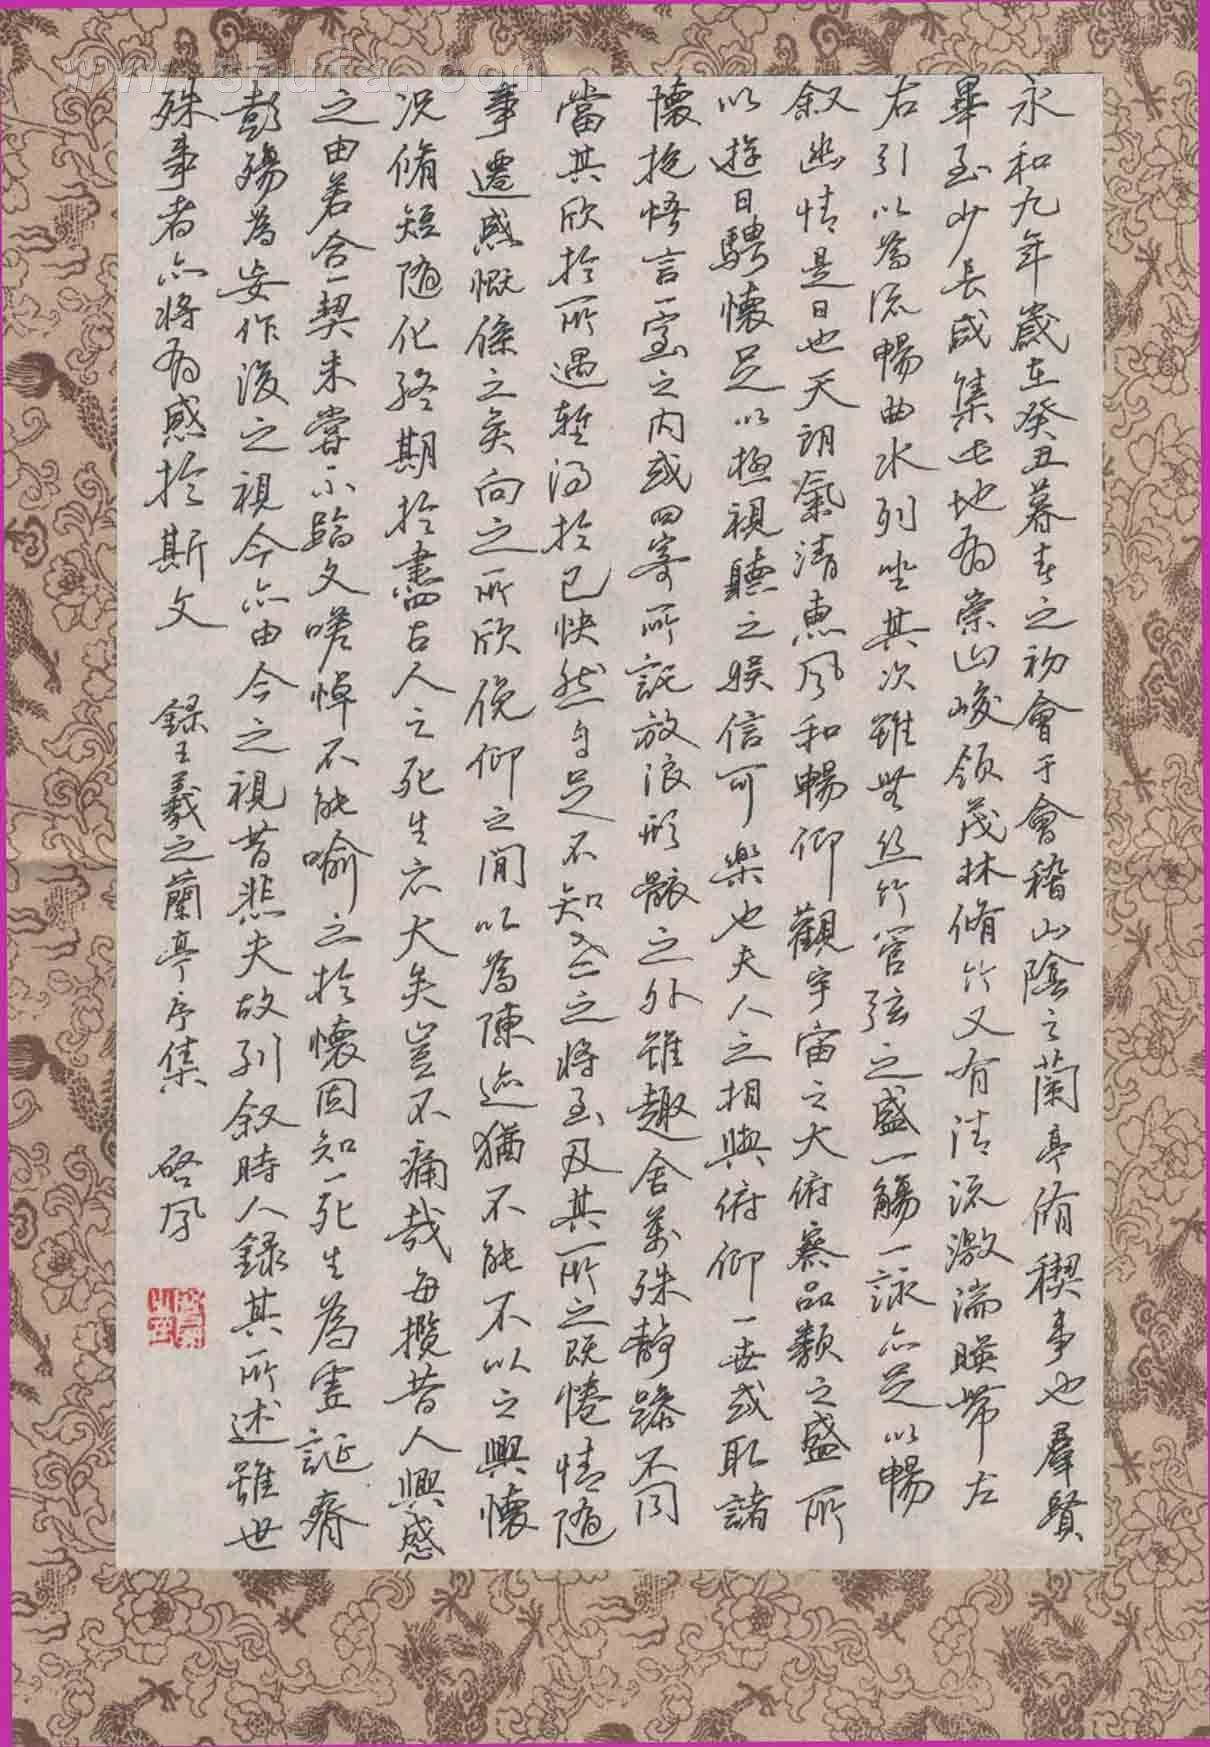 www.shufa.com
永和九年歲在癸丑暮春之初會于會稽山陰之蘭亭脩稧事也羣賢
畢至少長咸集此地有崇山峻領茂林脩竹又有清流激湍暎帶左
右引以為流暢曲水列坐其次雖無絲竹管弦之盛一觴一詠亦足以暢
叙幽情是日也天朗氣清惠風和暢仰觀宇宙之大俯察品類之盛所
以遊目騁懷足以極視聽之娛信可樂也夫人之相與俯仰一世或取諸
懷抱悟言一室之内或因寄所託放浪形骸之外雖趣舍萬殊靜躁不同
當其欣於所遇暫得於己快然自足不知老之將至及其所之既惓情隨
事遷感慨係之矣向之所欣俛仰之間以為陳迹猶不能不以之興懷
况脩短隨化終期於盡古人云死生亦大矣豈不痛哉每攬昔人興感
之由若合一契未嘗不臨文嗟悼不能喻之於懷固知一死生為虛誕齊
彭殤為妄作後之視今亦由今之視昔悲夫故列叙時人錄其所述雖世
殊事者亦將有感於斯文 錄王羲之蘭亭序集 啓凤